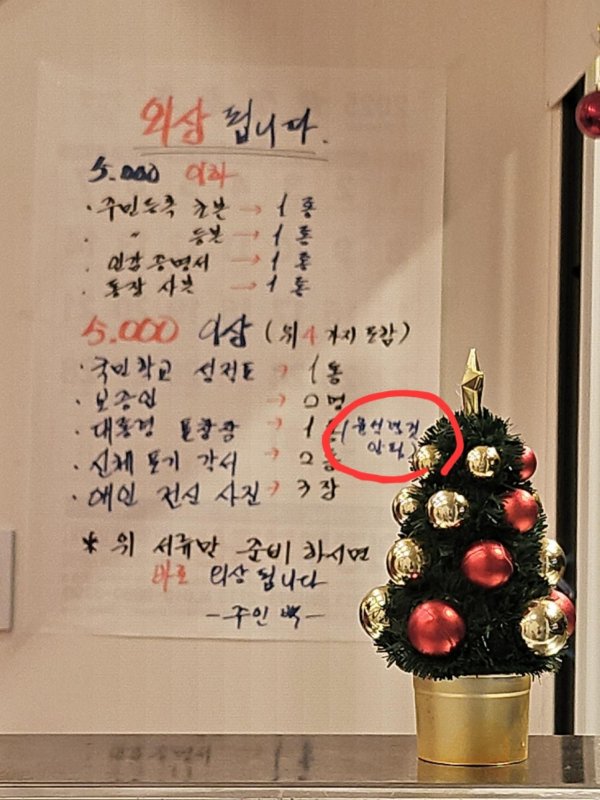 외상 됩니다.
5.000 이하
· 주민등록 초본 → 1 통
· 〃 등본 → 1 통
· 인감증명서 → 1 통
· 통장 사본 → 1 통
5.000 이상 (위 4가지 포함)
· 국민학교 성적표 → 1 통
· 보증인 → 2 명
· 대통령 표창장 → 1 통 (윤석열것 안됨)
· 신체포기 각서 → 2 통
· 애인 전신 사진 → 3 장
* 위 서류만 준비 하시면
바로 외상 됩니다
- 주인 백 -